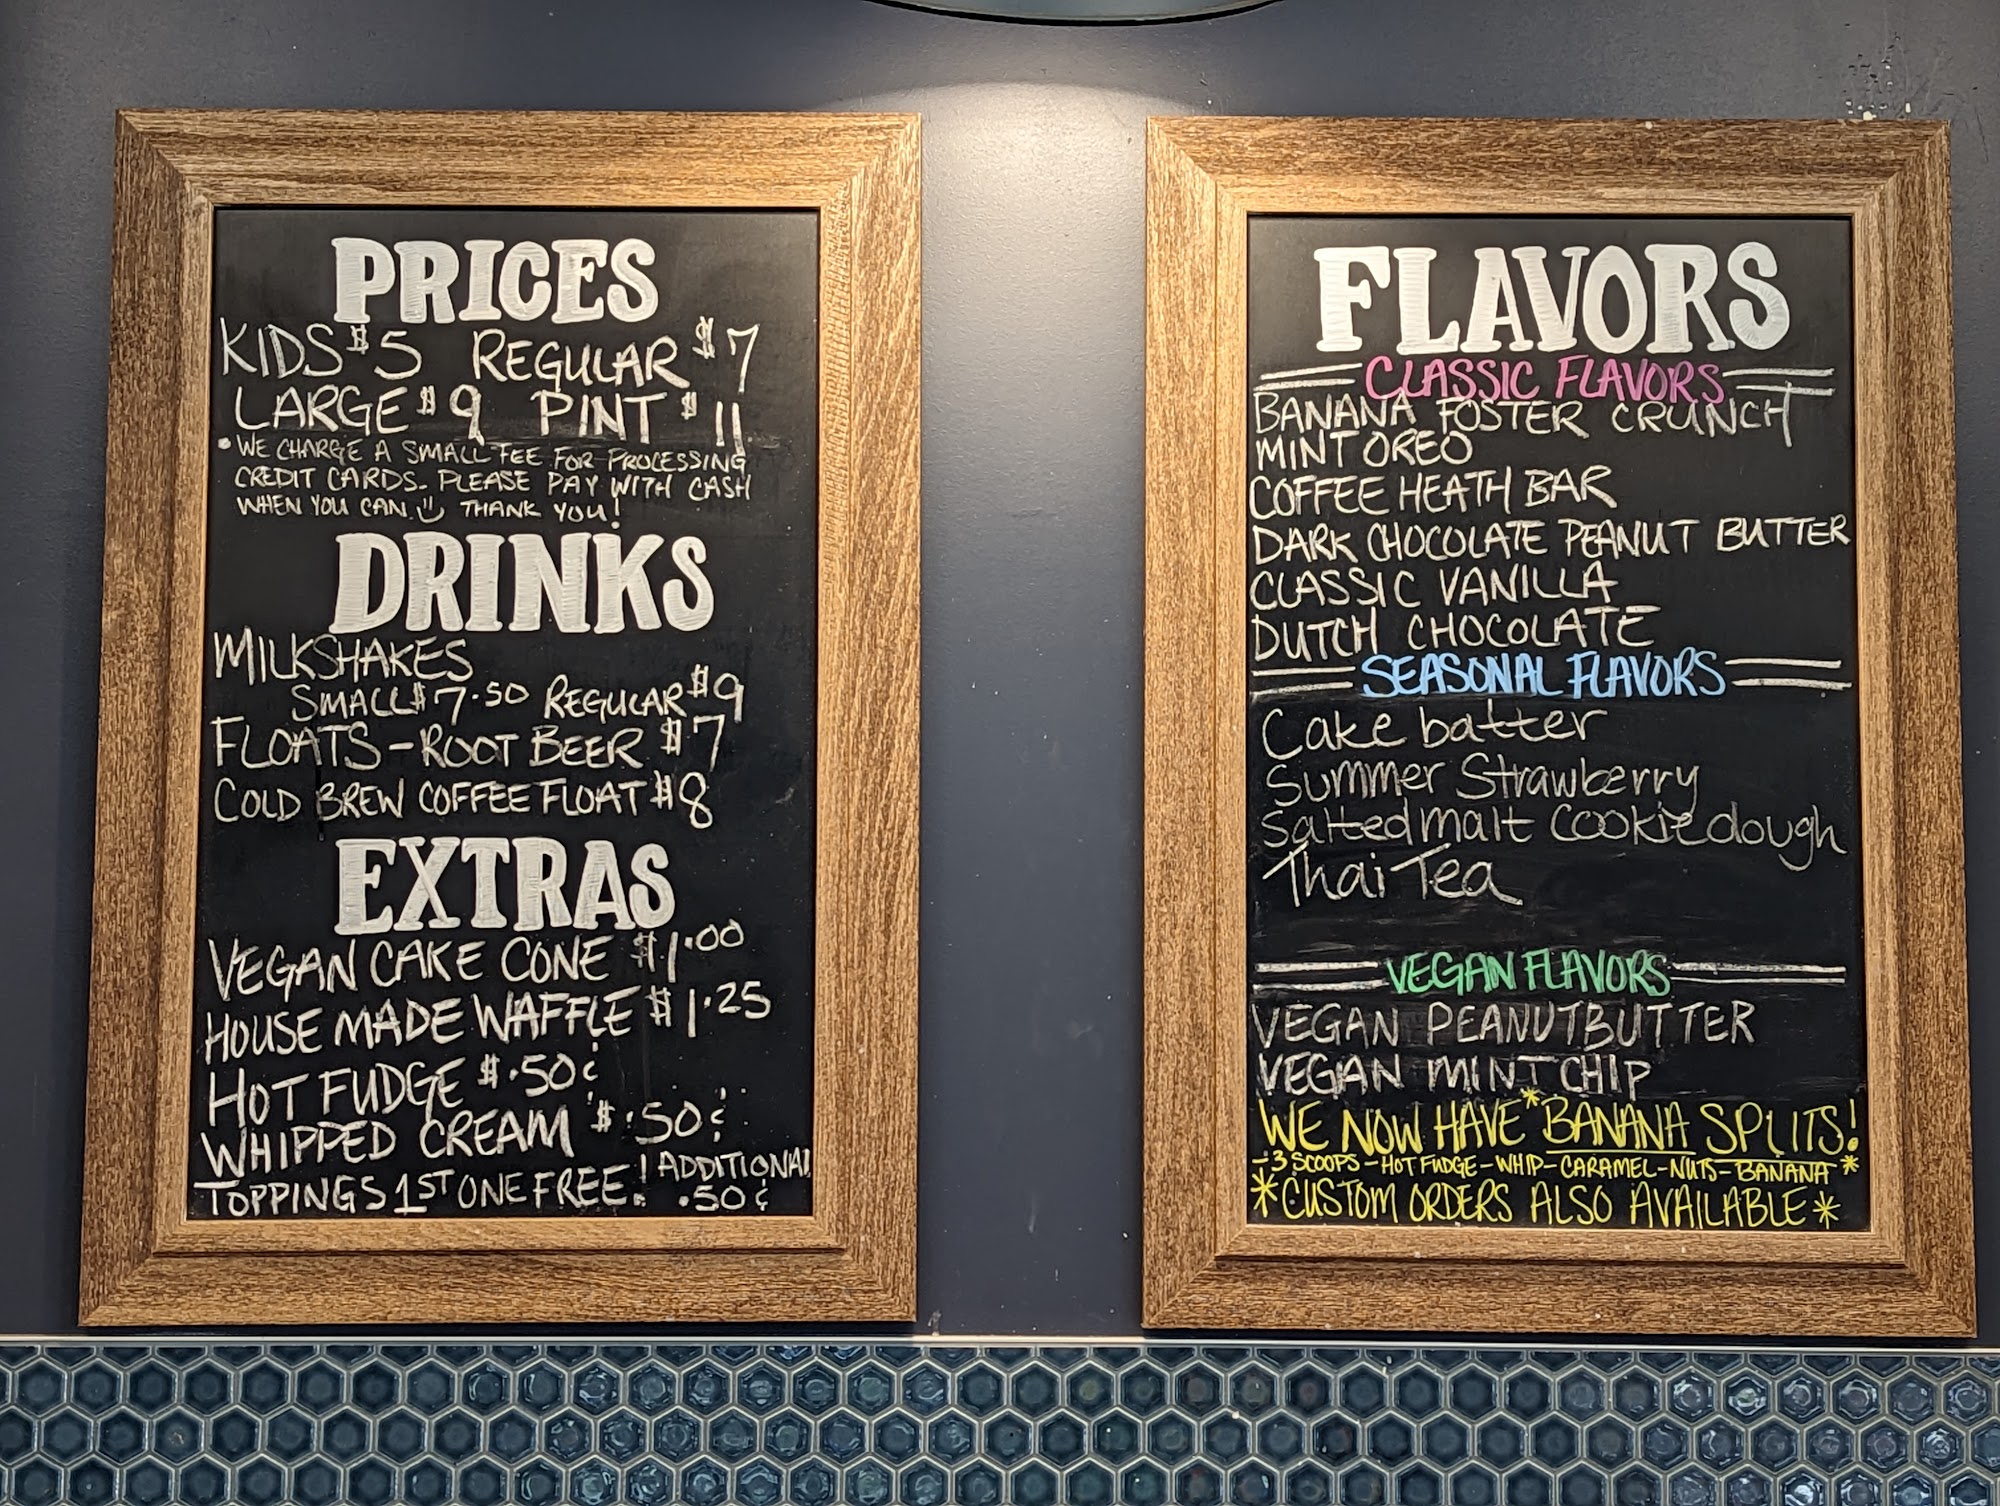 PRICES
KIDS $5 REGULAR $7
LARGE $9 PINT $11
• WE CHARGE A SMALL FEE FOR PROCESSING
CREDIT CARDS. PLEASE PAY WITH CASH
WHEN YOU CAN. THANK YOU!
DRINKS
MILKSHAKES
SMALL $7.50 REGULAR $9
FLOATS - ROOT BEER $7
COLD BREW COFFEE FLOAT $8
EXTRAS
VEGAN CAKE CONE $1.00
HOUSE MADE WAFFLE $1.25
HOT FUDGE $.50¢
WHIPPED CREAM $.50¢
TOPPINGS 1ST ONE FREE! ADDITIONAL
.50¢
FLAVORS
CLASSIC FLAVORS
BANANA FOSTER CRUNCH
MINT OREO
COFFEE HEATH BAR
DARK CHOCOLATE PEANUT BUTTER
CLASSIC VANILLA
DUTCH CHOCOLATE
SEASONAL FLAVORS
Cake batter
Summer Strawberry
Salted malt cookie dough
Thai Tea
VEGAN FLAVORS
VEGAN PEANUTBUTTER
VEGAN MINT CHIP
WE NOW HAVE *BANANA SPLITS!
-3 SCOOPS-HOT FUDGE-WHIP-CARAMEL-NUTS-BANANA*
*CUSTOM ORDERS ALSO AVAILABLE*